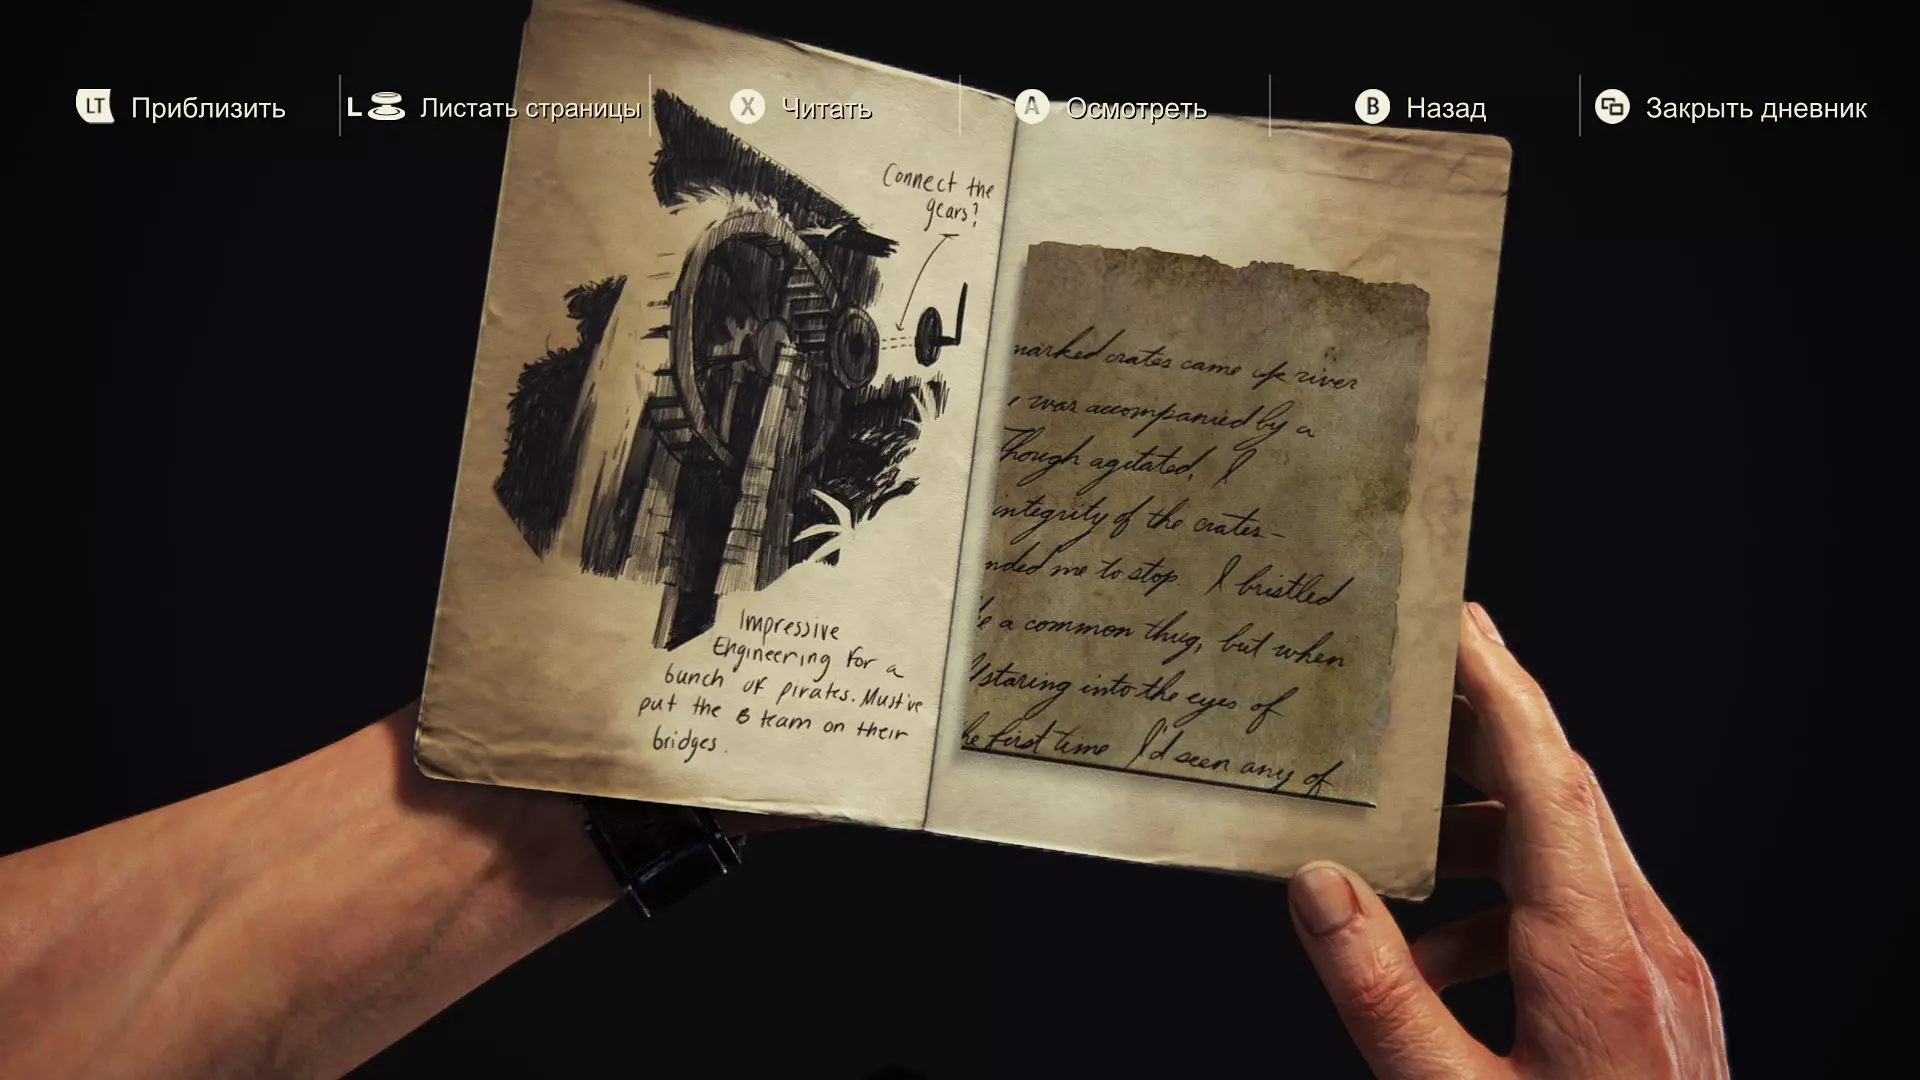 LT Приблизить
L Листать страницы
X Читать
A Осмотреть
B Назад
Закрыть дневник
Connect the
gears?
Impressive
Engineering for a
bunch of pirates. Must've
put the B team on their
bridges.
marked crates came up river
was accompanied by a
Though agitated, I
integrity of the crates–
nded me to stop. I bristled
a common thug, but when
staring into the eyes of
he first time I'd seen any of